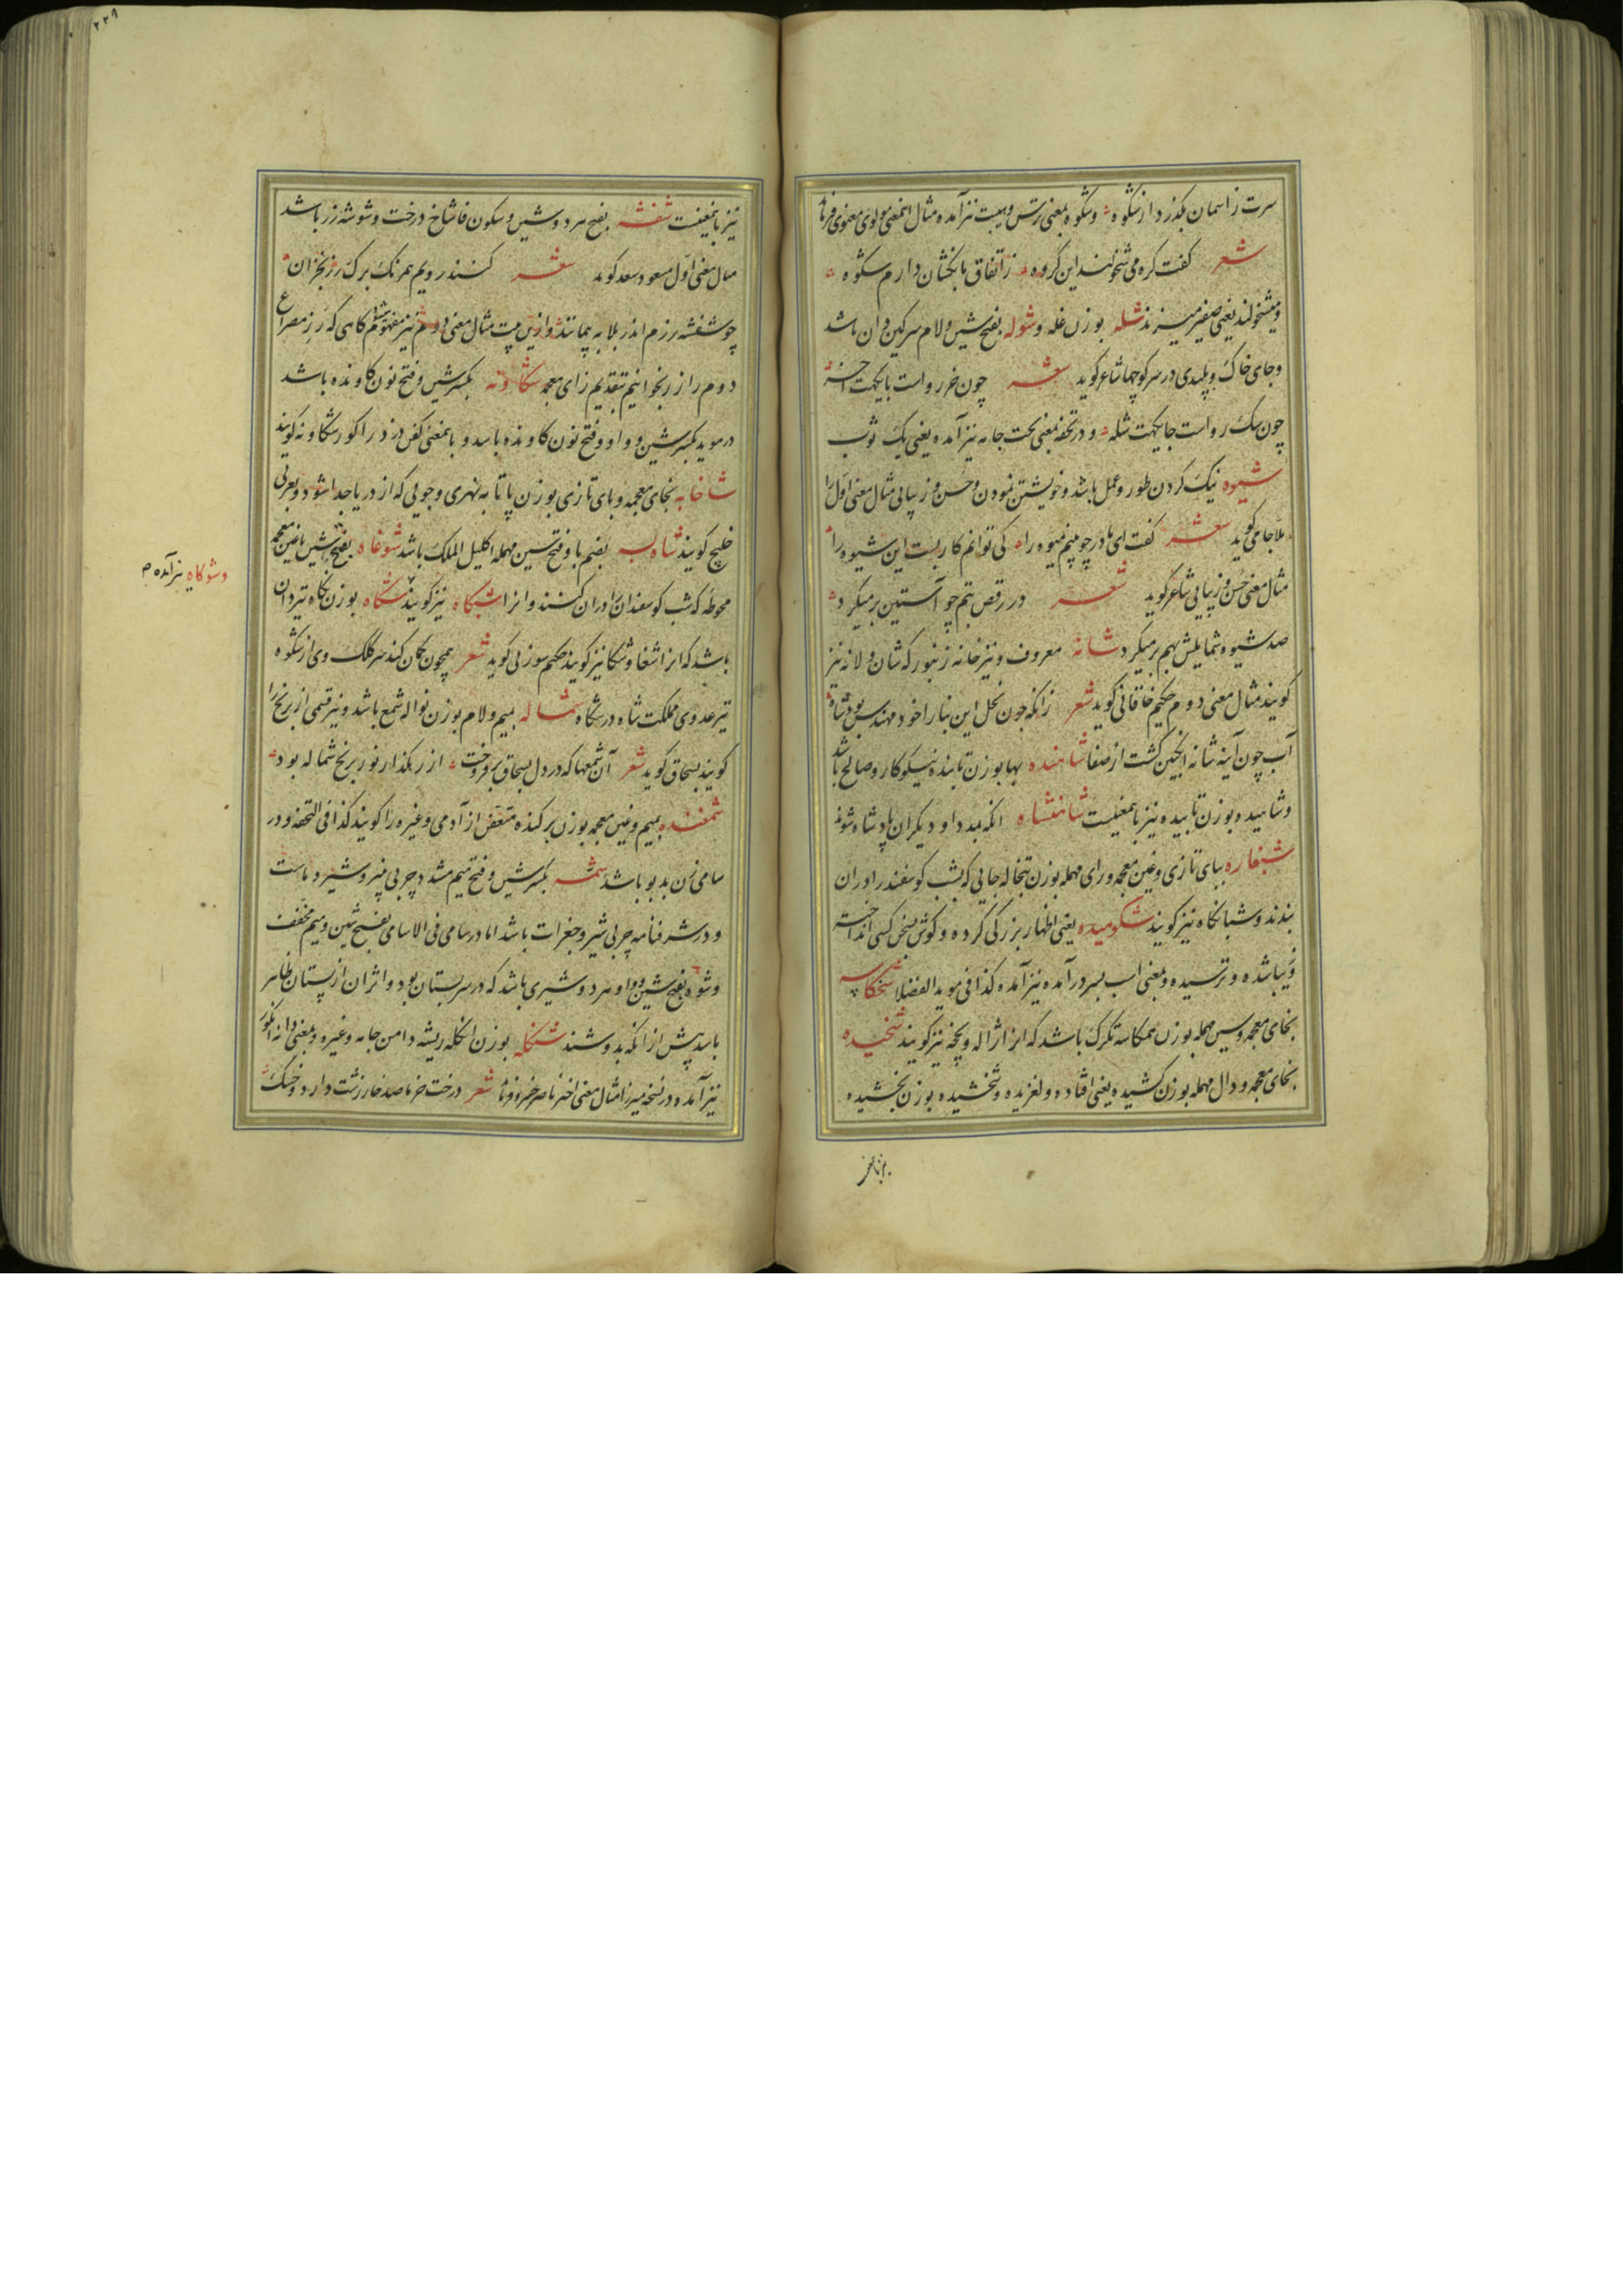 سرت ز اسمان بگذرد از شکوه و شکوه بمعنی ترس و هیبت نیز آمده مثال اینمعنی مولوی معنوی فرماید
شعر کفت کره می شخولند این کروه ز اتفاق بانکشان دارم شکوه
و میشخولند یعنی صفیر میزنند شله بوزن غله و شوله بفتح شین و لام سرکین دان باشد
و جای خاک و پلیدی در سر کوچها شاعر کوید شعر چون خر رواست پایکهت آخر
چون سک رواست جایکهت شله و در تحفه بمعنی تخت جامه نیز آمده یعنی یک ثوب
شیوه نیک کردن طور و عمل باشد و خویشتن نمودن و حسن و زیبایی مثال معنی اول را
ملا جامی کوید شعر کفت ای مادر چو بینم میوه را کی توانم کار بست این شیوه را
مثال معنی حسن و زیبایی شاعر کوید شعر در رقص بتم چو آستین بر میکرد
صد شیوه شمایلش بهم بر میکرد شانه معروف و نیز خانه زنبور که شان و لانه نیز
کویند مثال معنی دوم حکیم خاقانی کوید شعر زانکه چون نحل این بنا را خود مهندس بود شاه
آب چون آینه شانه انکبین کشت از صفا شاهنده بها بوزن تابنده نیکوکار و صالح باشد
و شاهیده بوزن تابیده نیز باینمعنیست شاهنشاه انکه بمدد او دیکران پادشاه شوند
شبغاره ببای تازی و غین معجمه و رای مهمله بوزن تبخاله جایی که بشب کوسفند را در ان
بندند و شبانکاه نیز کویند شکومیده یعنی اظهار بزرکی کرده و کوش بسخن کسی انداخته
و زیبا شده و ترسیده و بمعنی اسب بسر در آمده نیز آمده کذا فی موید الفضلا شخکاسه
بخای معجمه و سین مهمله بوزن همکاسه تکرک باشد که انرا ژاله و یخچه نیز کویند شخیده
بخای معجمه و دال مهمله بوزن کشیده یعنی افتاده و لغزیده و شخشیده بوزن بخشیده
نیز باینمعنیست
۲۲۹
نیز باینمعنیست شفشه بفتح هر دو شین و سکون فا شاخ درخت و شوشه زر باشد
مثال معنی اول مسعود سعد کوید شعر کنند رویم همرنک برک رز بخزان
چو شفشه رزم اندر بلا به پیمانند و ازین بیت مثال معنی دوم نیز مفهوم میشود کاهی که رز مصراع
دوم را زر بخوانیم بتقدیم زای معجمه شکاونه بکسر شین و فتح نون کاونده باشد
در موید بکسر شین و واو و فتح نون کاونده باشد و باینمعنی کفن دزد را کور شکاونه کویند
شاخابه بخای معجمه و بای تازی بوزن پاتابه نهری و جویی که از دریا جدا شود و بعربی
خلیج کویند شاه بسه بضم با و فتح سین مهمله اکلیل الملک باشد شوغاه بفتح شین با غین معجمه
محوطه که شب کوسفندان را در ان کنند و انرا شبکاه نیز کویند شکاه بوزن نکاه تیردان
و شوکاه نیز آمده م
باشد که انرا شغا و شکا نیز کویند حکیم سوزنی کوید شعر همچون کمان کند سر کلک وی از شکوه
تیر عدوی مملکت شاه در شکاه شماله بمیم و لام بوزن نواله شمع باشد و نیز قسمی از برنج را
کویند بسحاق کوید شعر آن شمعها که در دل بسحاق بر فروخت از رهکذار نور برنج شماله بود
شمغنده بمیم و غین معجمه بوزن برکنده متعفن از آدمی و غیره را کویند کذا فی التحفه و در
سامی زن بد بو باشد شمه بکسر شین و فتح میم مشدد چربی پنیر و شیر و ماست
و در شرفنامه چربی شیر و جغرات باشد اما در سامی فی الاسامی بفتح شین و میم مخفف
و شوه بفتح شین و واو هر دو شیری باشد که در سر پستان بود و اثر ان از پستان ظاهر
باشد پیش از انکه بدوشند شنکله بوزن انکله ریشه دامن جامه و غیره و بمعنی دانه انکور
نیز آمده در نسخه میرزا مثال معنی اخیر ناصر خسرو فرماید شعر درخت خرما صد خار زشت دارد و خشک